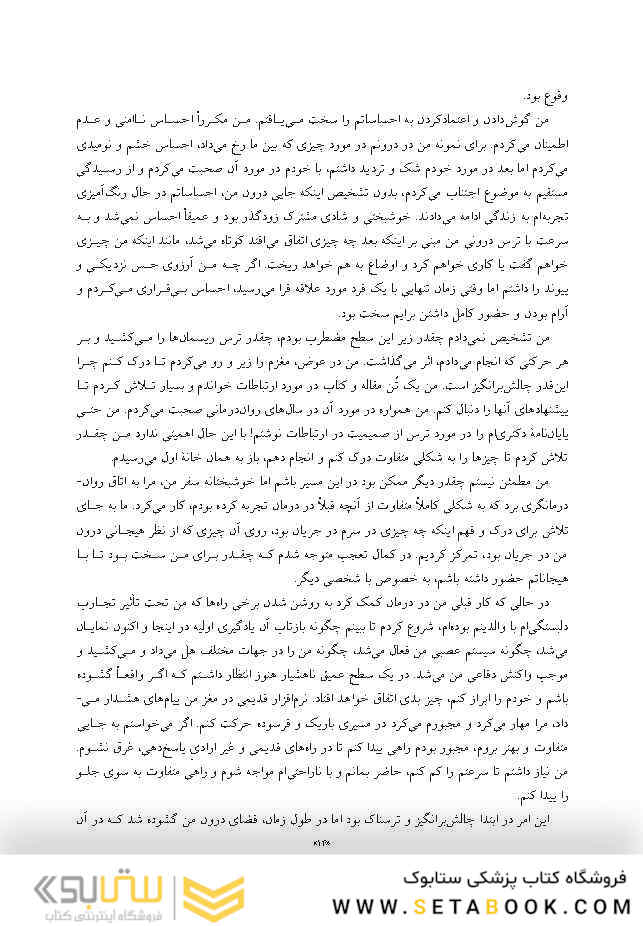 وقوع بود.
من گوش‌دادن و اعتمادکردن به احساساتم را سخت می‌یافتم. من مکرراً احساس ناامنی و عدم
اطمینان می‌کردم. برای نمونه من در درونم در مورد چیزی که بین ما رخ می‌داد، احساس خشم و نومیدی
می‌کردم اما بعد در مورد خودم شک و تردید داشتم، با خودم در مورد آن صحبت می‌کردم و از رسیدگی
مستقیم به موضوع اجتناب می‌کردم، بدون تشخیص اینکه جایی درون من، احساساتم در حال رنگ‌آمیزی
تجربه‌ام به زندگی ادامه می‌دادند. خوشبختی و شادی مشترک زودگذر بود و عمیقاً احساس نمی‌شد و به
سرعت با ترس درونی من مبنی بر اینکه بعد چه چیزی اتفاق می‌افتد کوتاه می‌شد، مانند اینکه من چیزی
خواهم گفت یا کاری خواهم کرد و اوضاع به هم خواهد ریخت. اگر چه من آرزوی حس نزدیکی و
پیوند را داشتم اما وقتی زمان تنهایی با یک فرد مورد علاقه فرا می‌رسید، احساس بی‌قراری می‌کردم و
آرام بودن و حضور کامل داشتن برایم سخت بود.
من تشخیص نمی‌دادم چقدر زیر این سطح مضطرب بودم، چقدر ترس ریسمان‌ها را می‌کشید و بر
هر حرکتی که انجام می‌دادم، اثر می‌گذاشت. من در عوض، مغزم را زیر و رو می‌کردم تا درک کنم چرا
این‌قدر چالش‌برانگیز است. من یک تُن مقاله و کتاب در مورد ارتباطات خواندم و بسیار تلاش کردم تا
پیشنهادهای آنها را دنبال کنم. من همواره در مورد آن در سال‌های روان‌درمانی صحبت می‌کردم. من حتی
پایان‌نامهٔ دکتری‌ام را در مورد ترس از صمیمیت در ارتباطات نوشتم! با این حال اهمیتی ندارد من چقدر
تلاش کردم تا چیزها را به شکلی متفاوت درک کنم و انجام دهم، باز به همان خانهٔ اول می‌رسیدم.
من مطمئن نیستم چقدر دیگر ممکن بود در این مسیر باشم اما خوشبختانه سفر من، مرا به اتاق روان-
درمانگری برد که به شکلی کاملاً متفاوت از آنچه قبلاً در درمان تجربه کرده بودم، کار می‌کرد. ما به جای
تلاش برای درک و فهم اینکه چه چیزی در سرم در جریان بود، روی آن چیزی که از نظر هیجانی درون
من در جریان بود، تمرکز کردیم. در کمال تعجب متوجه شدم که چقدر برای من سخت بود تا با
هیجاناتم حضور داشته باشم، به خصوص با شخصی دیگر.
در حالی که کار قبلی من در درمان کمک کرد به روشن شدن برخی راه‌ها که من تحت تأثیر تجارب
دلبستگی‌ام با والدینم بوده‌ام، شروع کردم تا ببینم چگونه بازتاب آن یادگیری اولیه در اینجا و اکنون نمایان
می‌شد، چگونه سیستم عصبی من فعال می‌شد، چگونه من را در جهات مختلف هل می‌داد و می‌کشید و
موجب واکنش دفاعی من می‌شد. در یک سطح عمیق ناهشیار هنوز انتظار داشتم که اگر واقعاً گشوده
باشم و خودم را ابراز کنم، چیز بدی اتفاق خواهد افتاد. نرم‌افزار قدیمی در مغز من پیام‌های هشدار می-
داد، مرا مهار می‌کرد و مجبورم می‌کرد در مسیری باریک و فرسوده حرکت کنم. اگر می‌خواستم به جایی
متفاوت و بهتر بروم، مجبور بودم راهی پیدا کنم تا در راه‌های قدیمی و غیر ارادیِ پاسخ‌دهی، غرق نشوم.
من نیاز داشتم تا سرعتم را کم کنم، حاضر بمانم و با ناراحتی‌ام مواجه شوم و راهی متفاوت به سوی جلو
را پیدا کنم.
این امر در ابتدا چالش‌برانگیز و ترسناک بود اما در طول زمان، فضای درون من گشوده شد که در آن
فروشگاه کتاب پزشکی ستابوک
WWW.SETABOOK.COM
ستابوک
فروشگاه اینترنتی کتاب